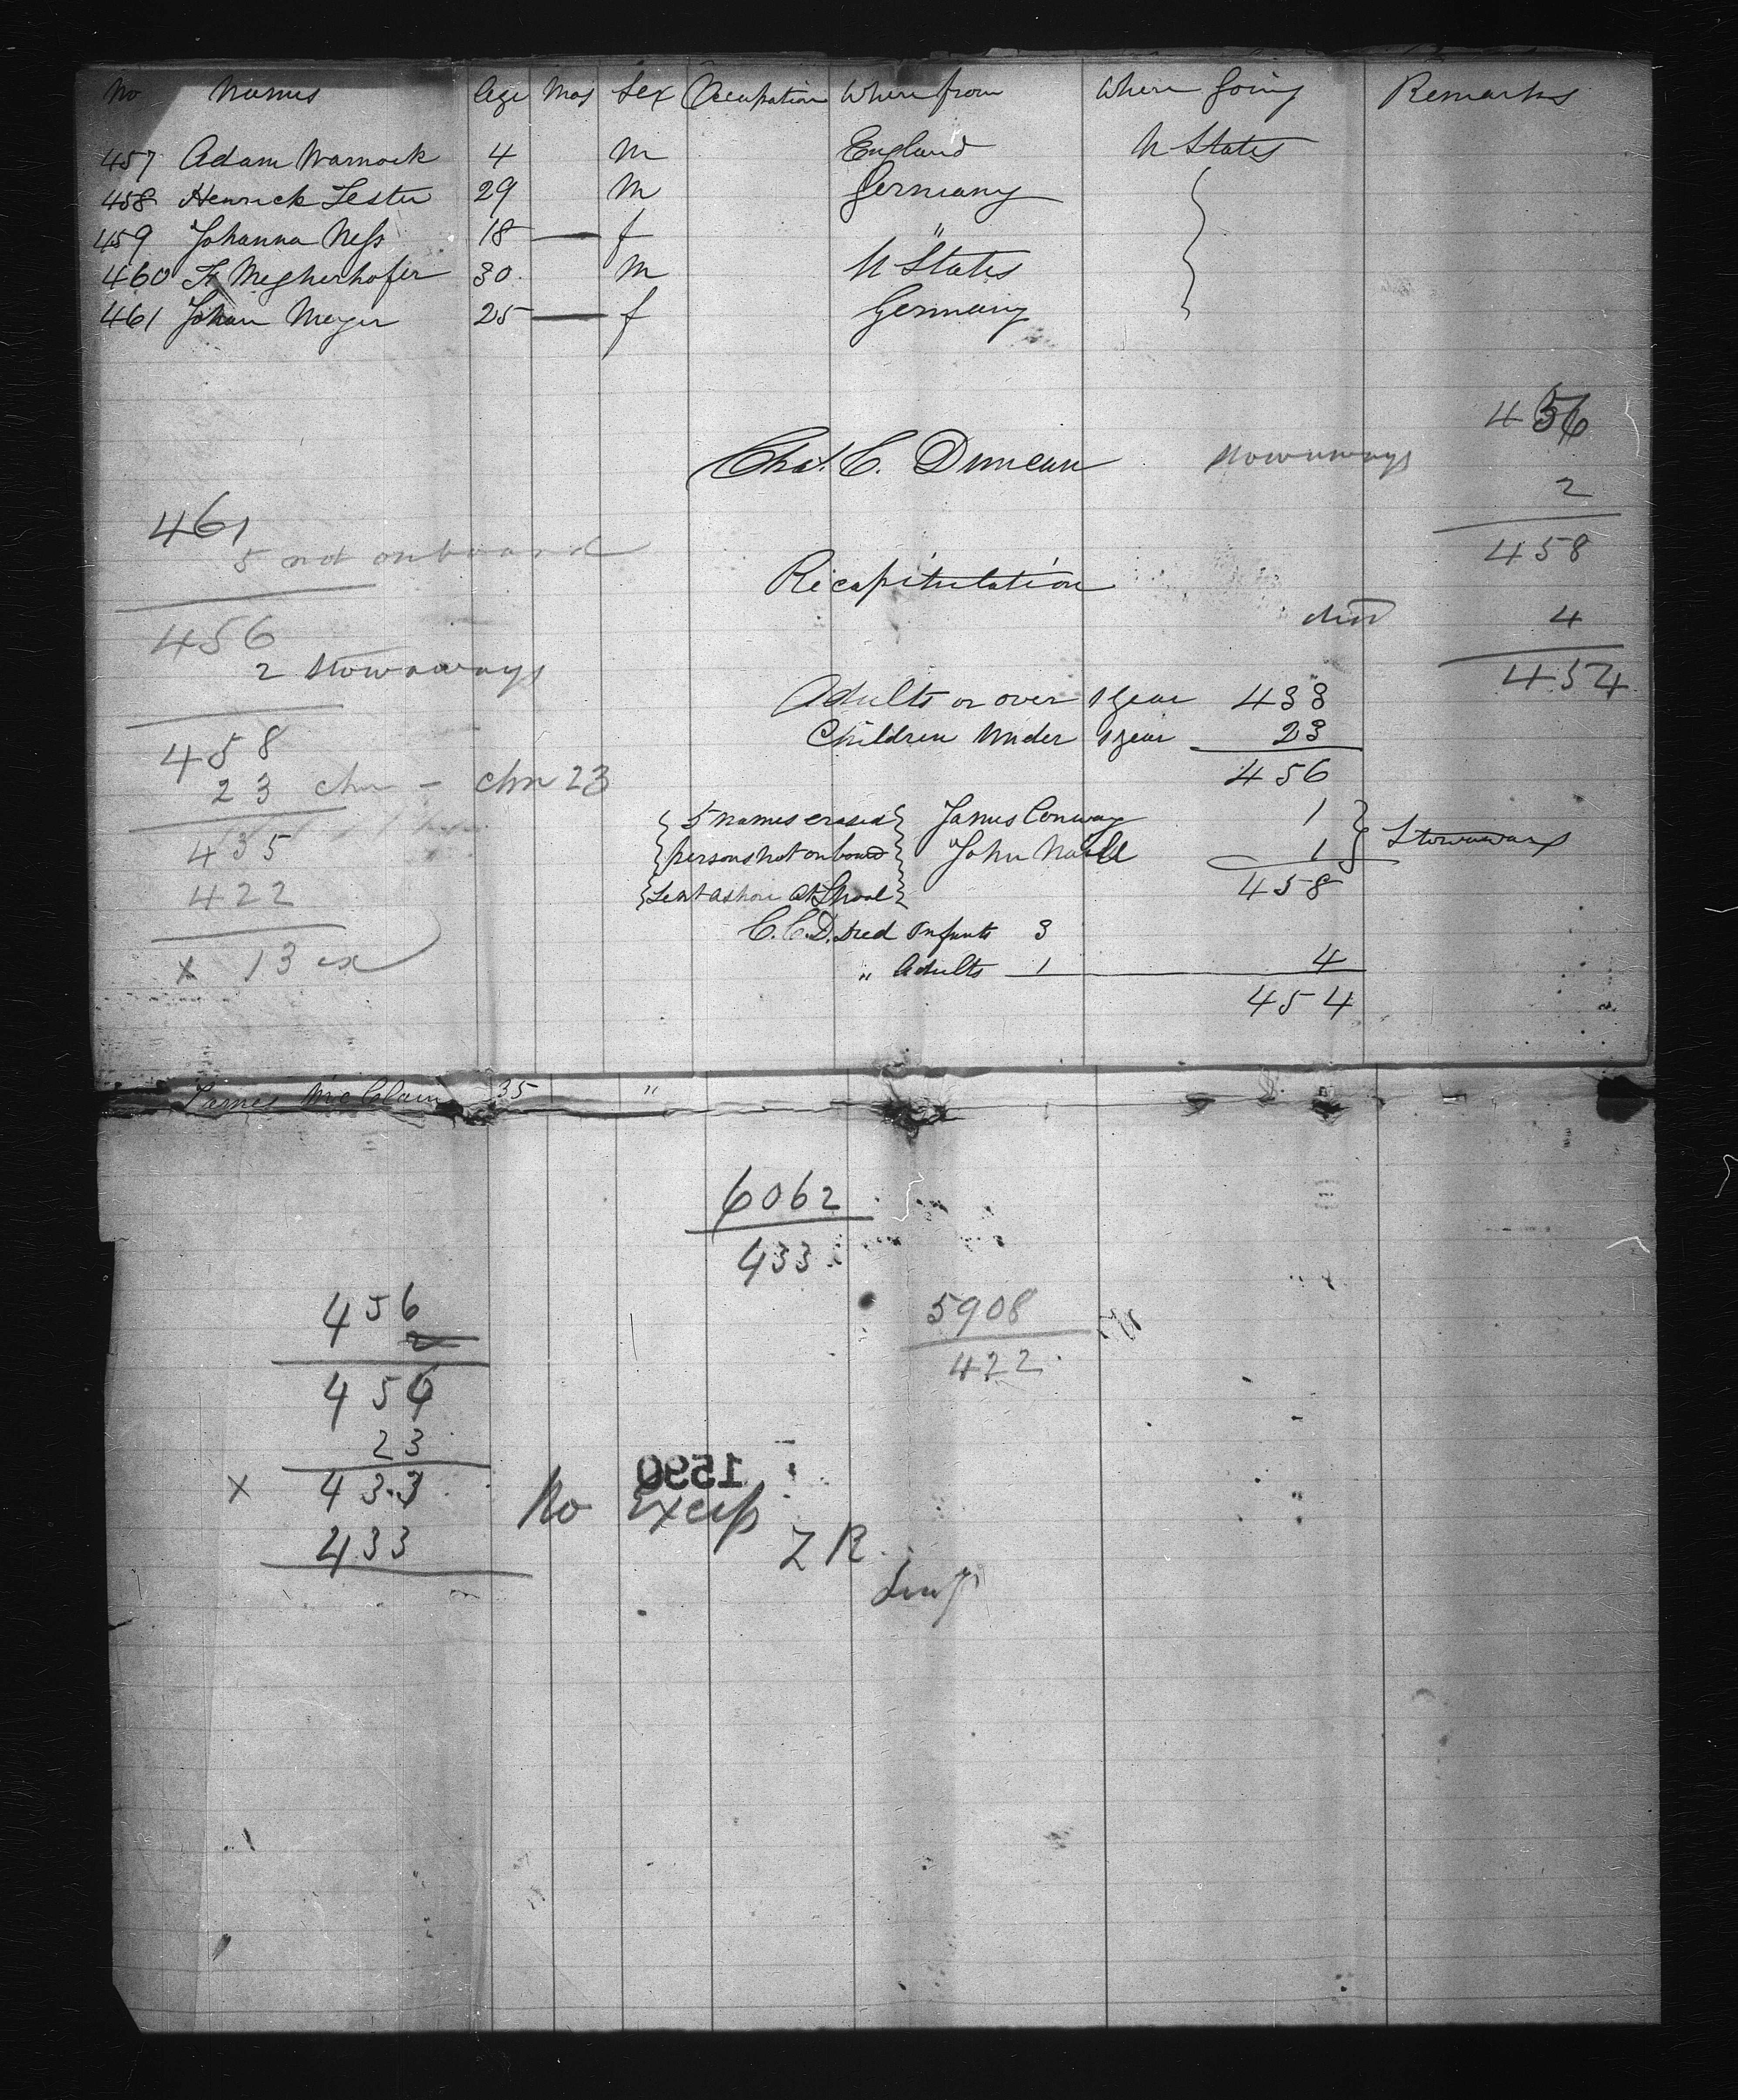 No Names Age Mos Sex Occupation Where from Where Going Remarks
457 Adam Warnock 4 m England U States
458 Henrick Lester 29 m Germany
459 Johanna Ness 18 f "
460 Fr Megherhofer 30 m U States
461 Johan Meyer 25 f Germany
456
Chas. C. Duncan
stowaways
2
458
461
5 not on board
456
2 stowaways
458
23 chn - chn 23
435
422
x 13 ex
Recapitulation
died 4
454
Adults or over 1 year 433
Children under 1 year 23
456
5 names erased James Conway 1
persons not on board John 1 Stowaways
Sent ashore at Lpool 458
C.C.D. Died Infants 3
" Adults 1 4
454
James McClain 35 "
6062
433
5908
422
456
2
456
23
x 433
433
1590
No Excess
Z R